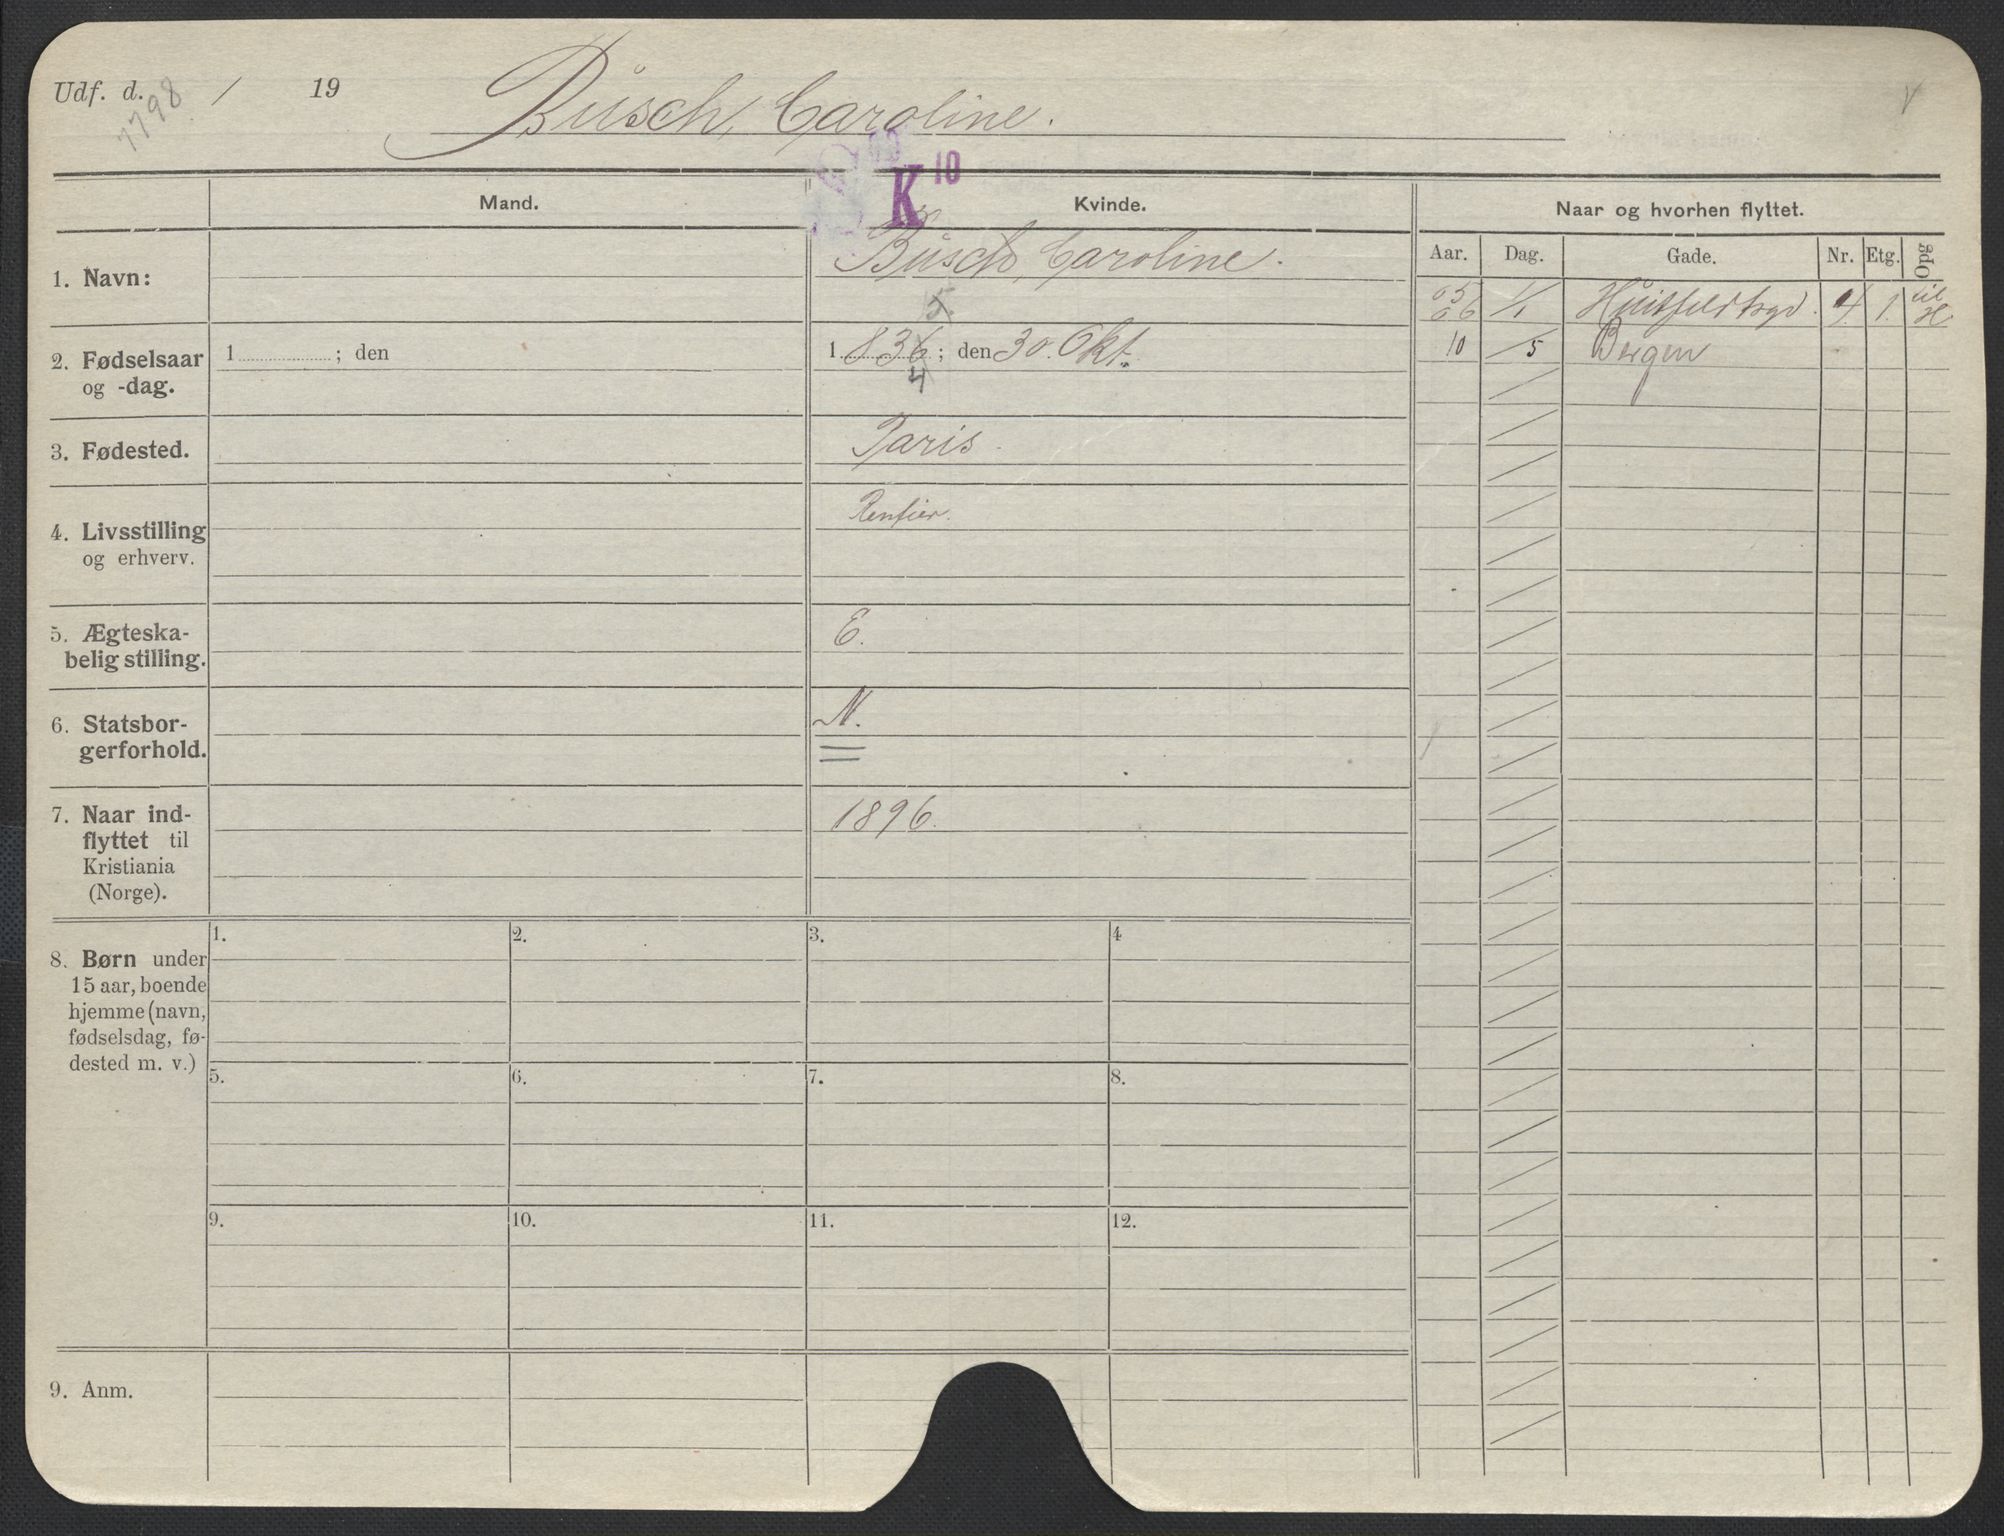 Udf. d. / 19
7798
Busch, Caroline.
K 10
Mand.
Kvinde.
Naar og hvorhen flyttet.
Aar. Dag. Gade. Nr. Etg. Opg
1. Navn:
Busch, Caroline.
05 1/1 Huitfeldtsgd. 4. 1. til
06 H
10 /5 Bergen
2. Fødselsaar
og -dag.
1 ; den
5.
1 836 ; den 30. Okt.
4
3. Fødested.
Paris.
4. Livsstilling
og erhverv.
Rentier.
5. Ægteska-
belig stilling.
E.
6. Statsbor-
gerforhold.
N.
7. Naar ind-
flyttet til
Kristiania
(Norge).
1896.
8. Børn under
15 aar, boende
hjemme (navn,
fødselsdag, fø-
dested m. v.)
1. 2. 3. 4
5. 6. 7. 8.
9. 10. 11. 12.
9. Anm.